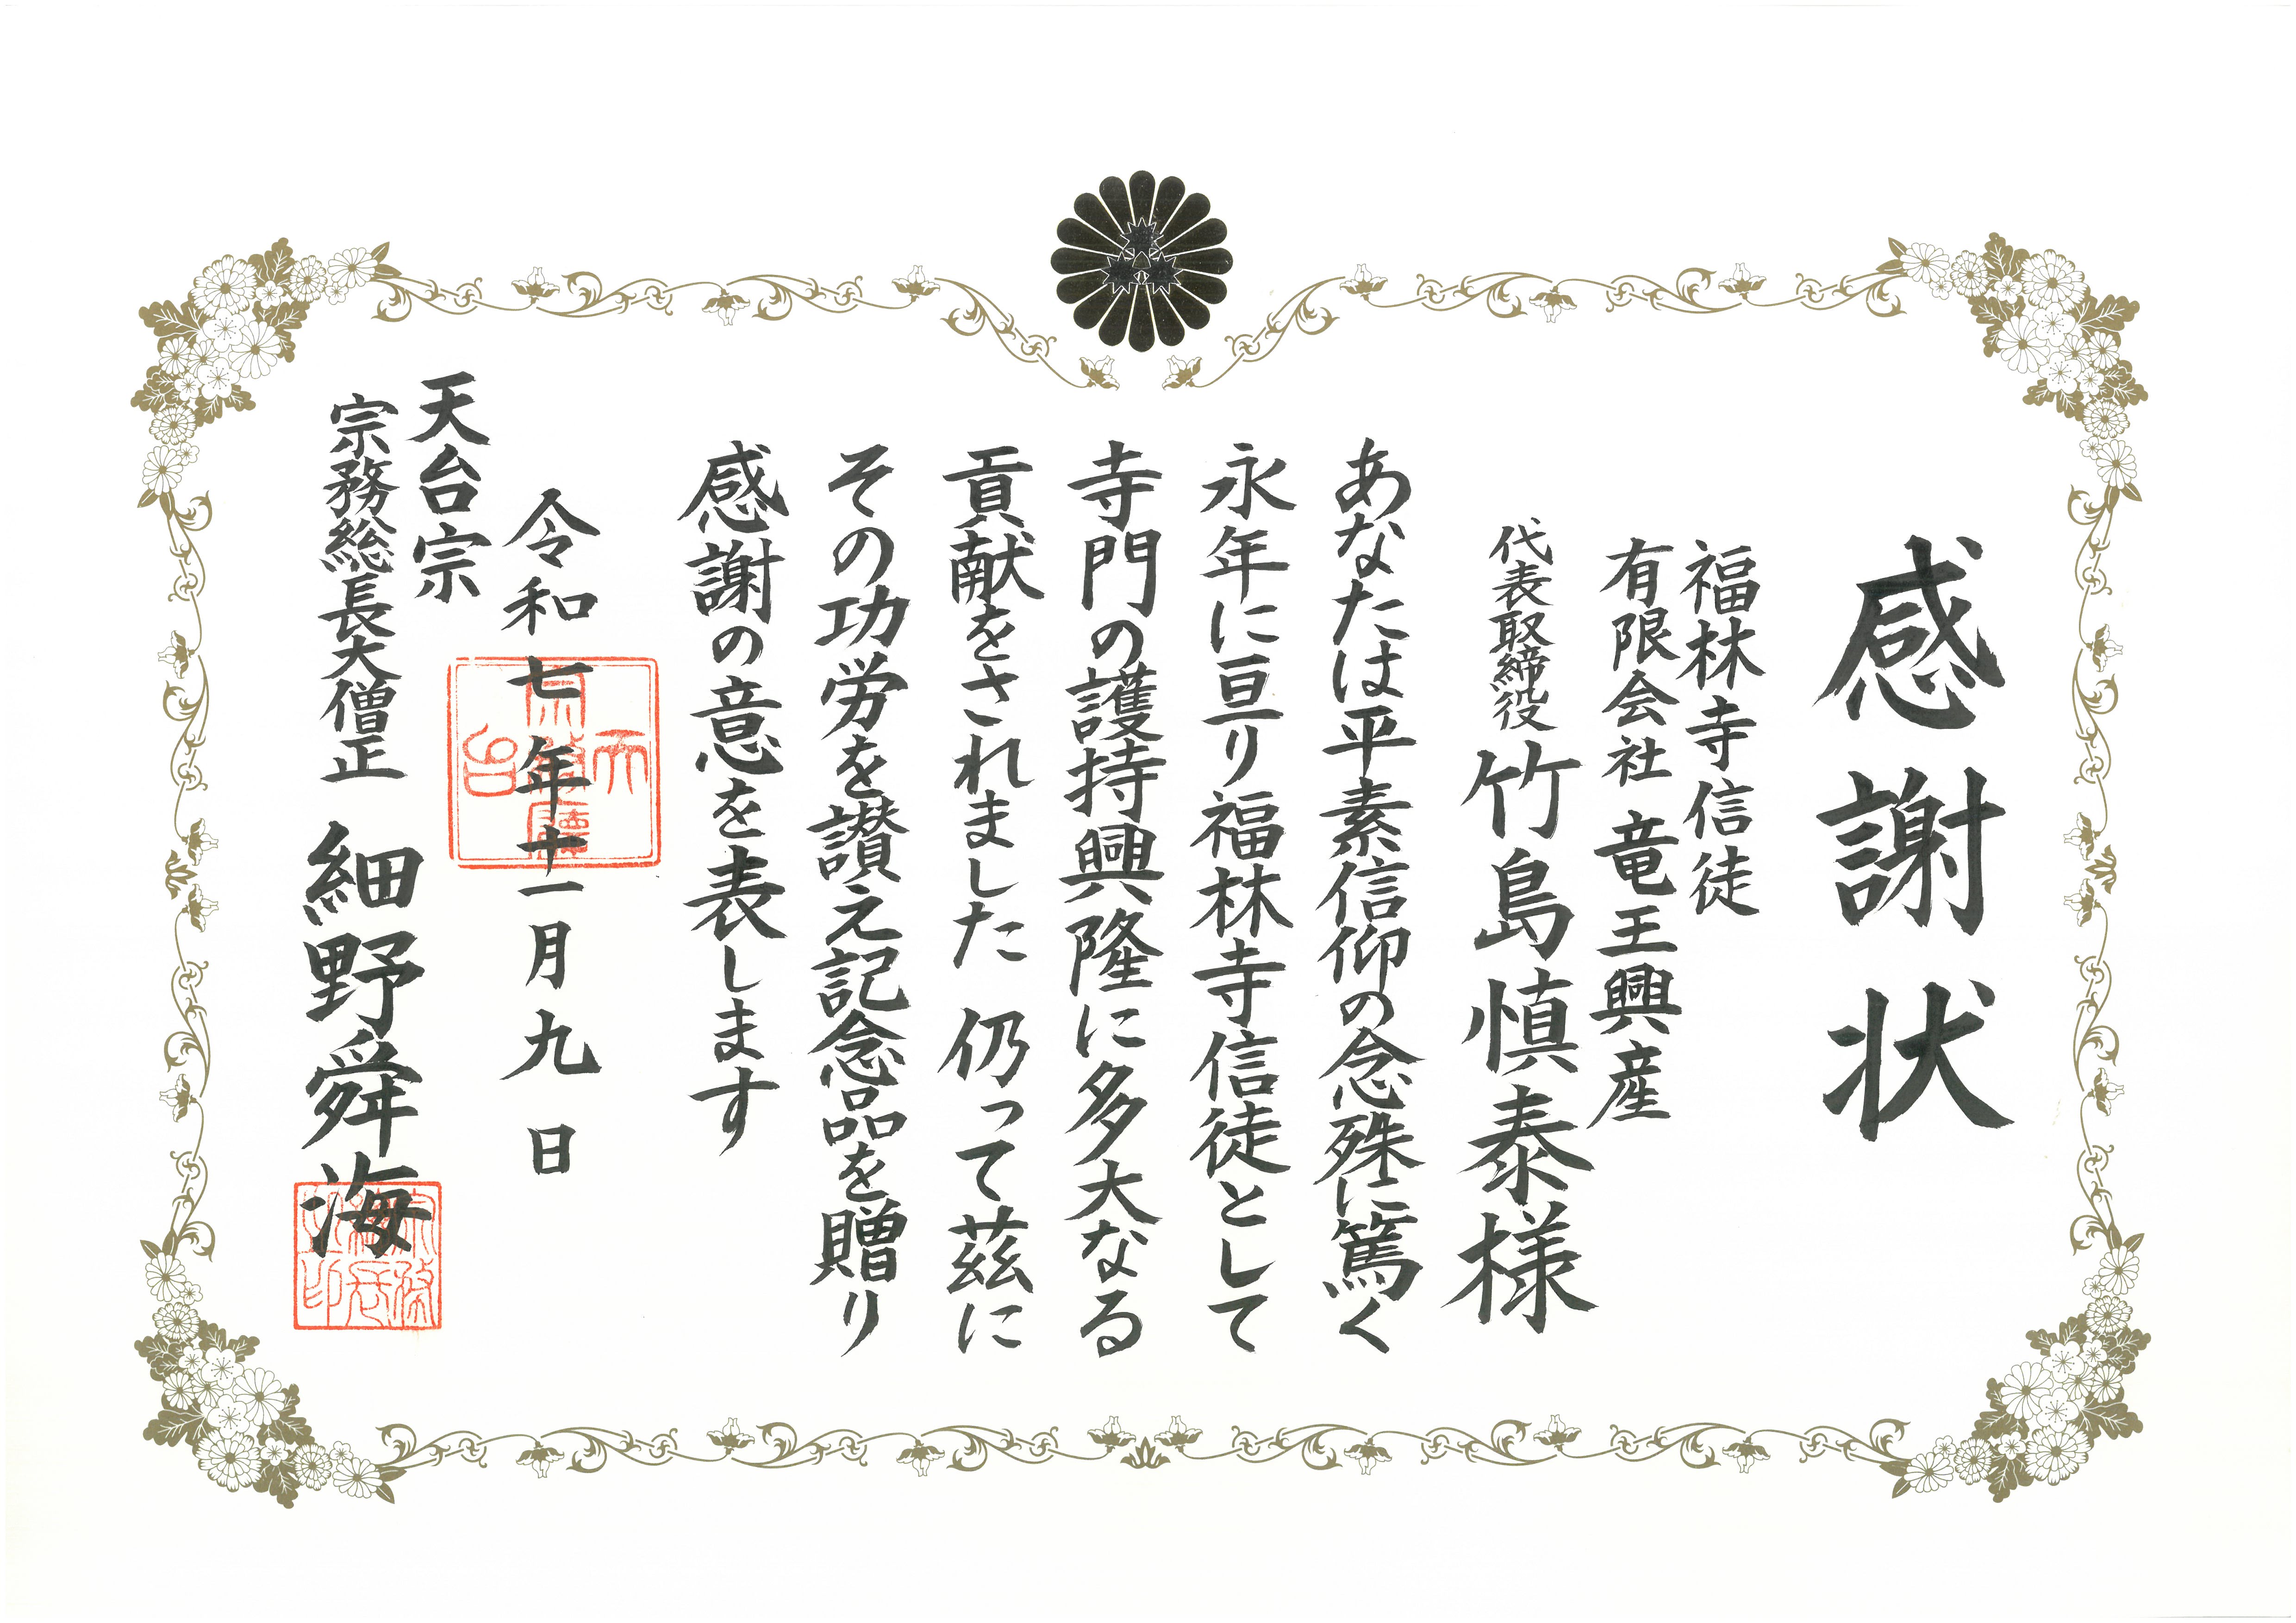 感謝状
福林寺信徒
有限会社 竜王興産
代表取締役 竹島慎泰様
あなたは平素信仰の念殊に篤く
永年に亘り福林寺信徒として
寺門の護持興隆に多大なる
貢献をされました 仍って茲に
その功労を讃え記念品を贈り
感謝の意を表します
令和七年十一月九日
天台宗
宗務総長大僧正 細野舜海
天台宗務廳